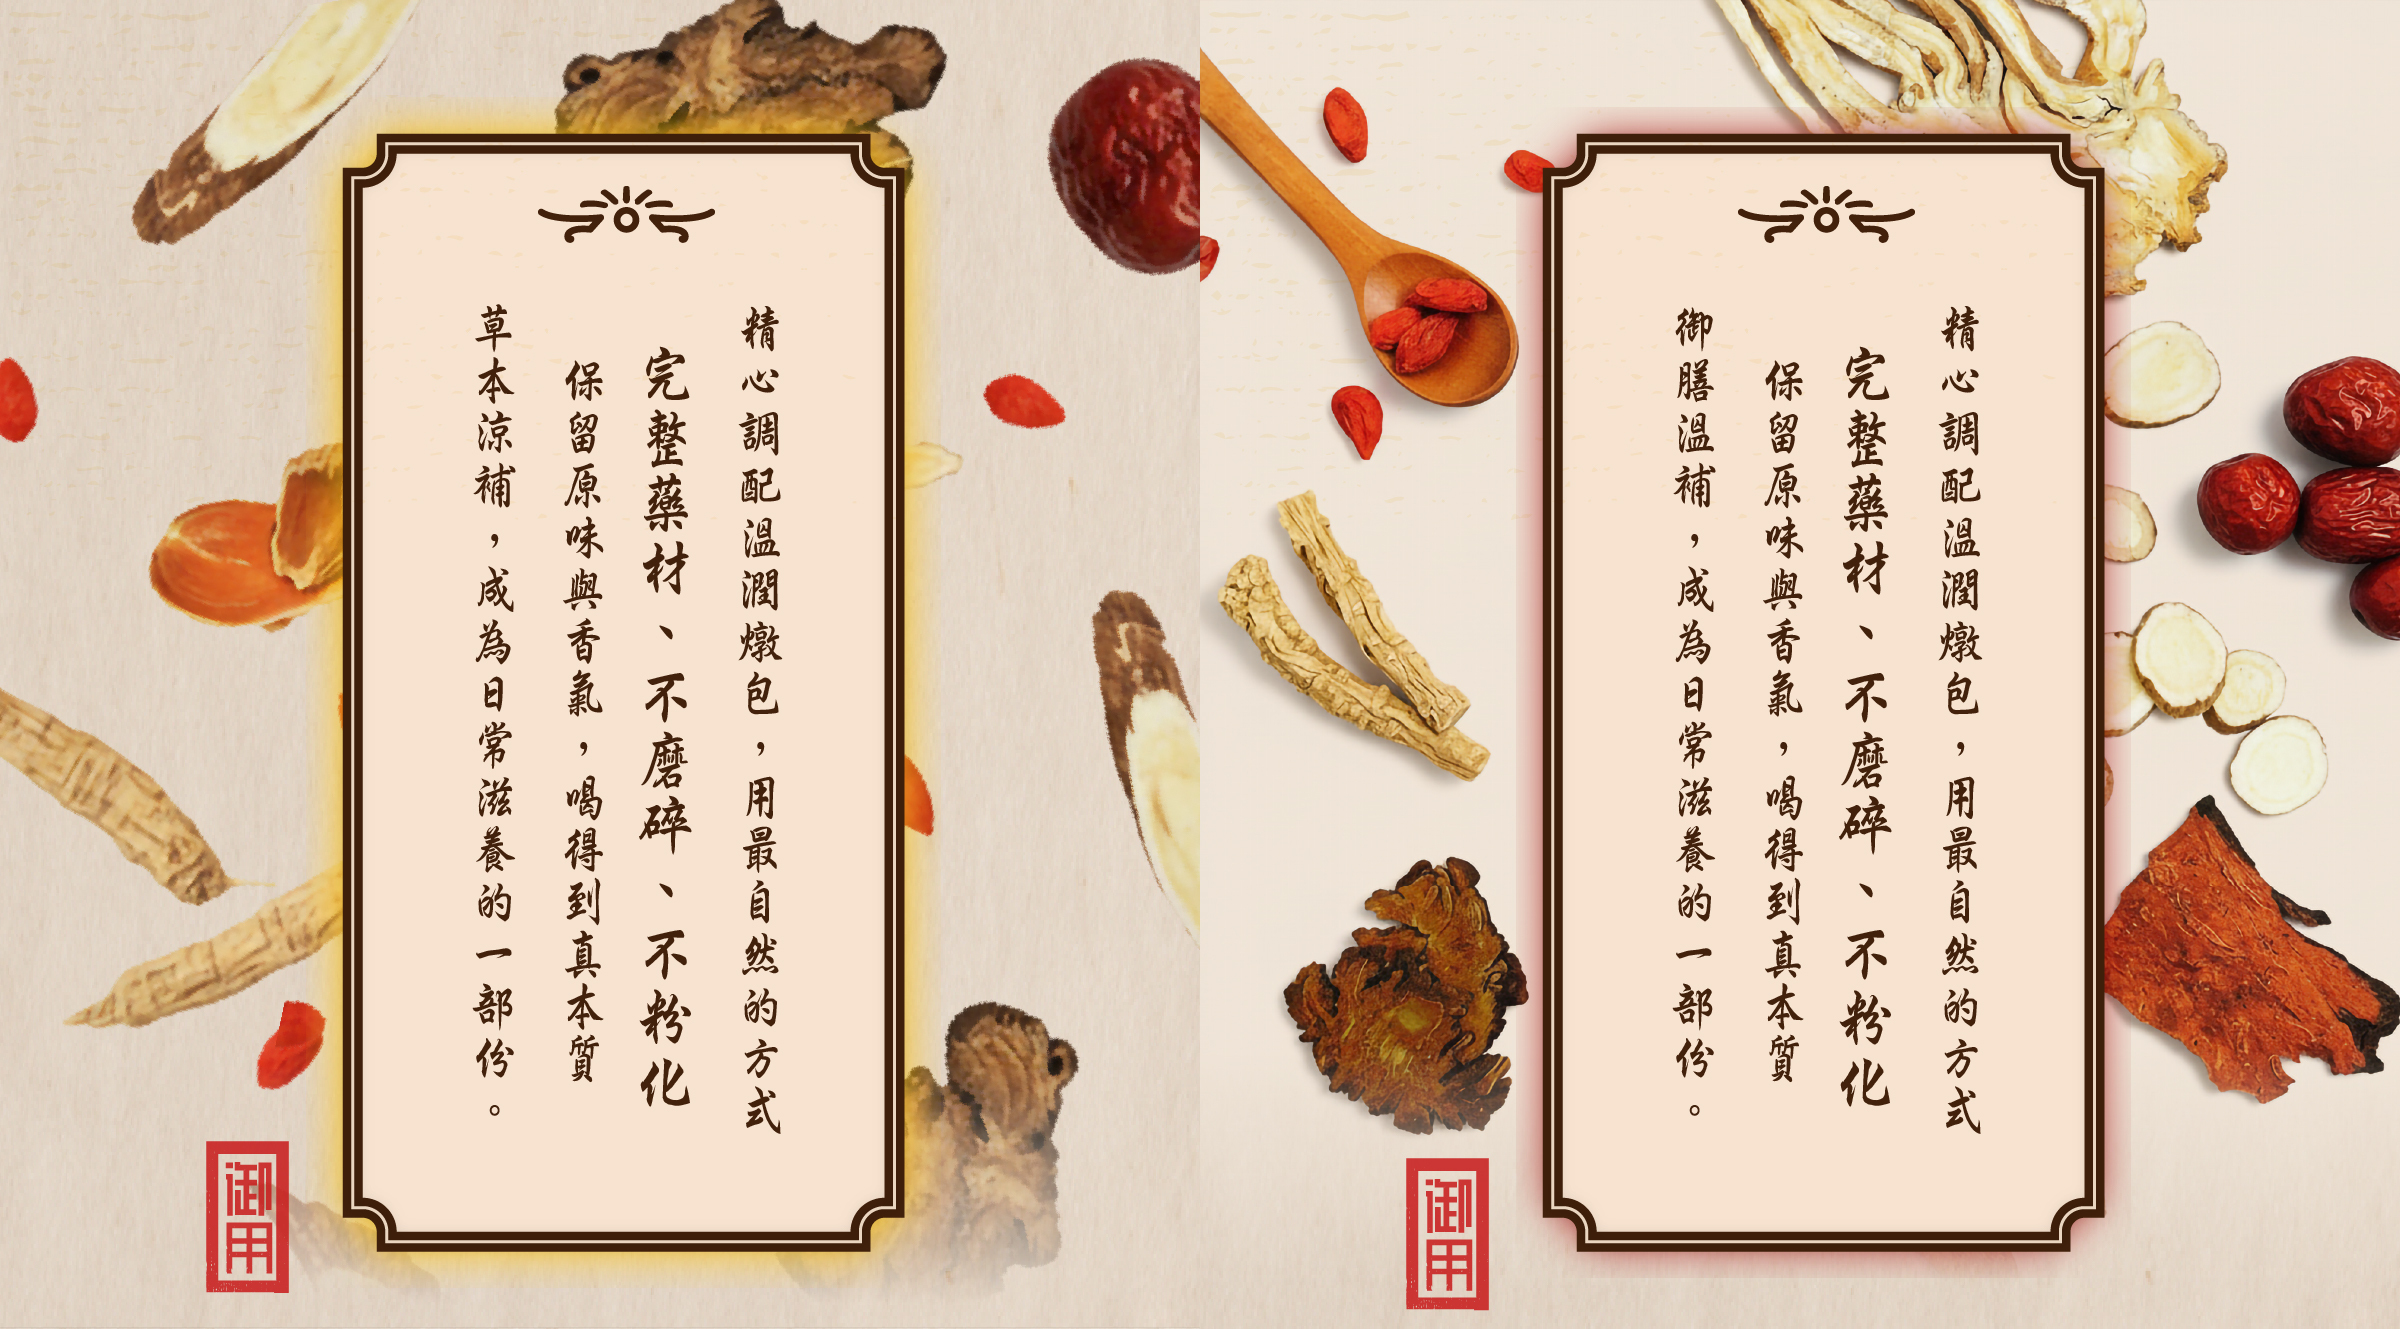 精心調配溫潤燉包，用最自然的方式
完整藥材、不磨碎、不粉化
保留原味與香氣，喝得到真本質
草本涼補，成為日常滋養的一部份。
御用
精心調配溫潤燉包，用最自然的方式
完整藥材、不磨碎、不粉化
保留原味與香氣，喝得到真本質
御膳溫補，成為日常滋養的一部份。
御用